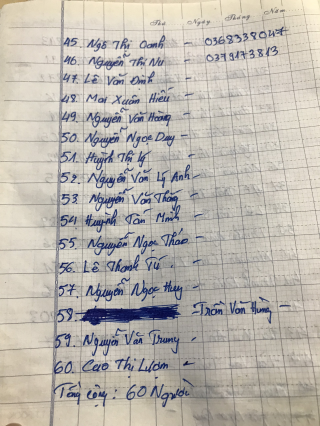 Thứ Ngày Tháng Năm
45. Ngô Thị Oanh - 0368338047
46. Nguyễn Thị Nu - 0379173813
47. Lê Văn Đình -
48. Mai Xuân Hiếu -
49. Nguyễn Văn Hoàng -
50. Nguyễn Ngọc Duy -
51. Huỳnh Thị Lý -
52. Nguyễn Văn Lý Anh -
53. Nguyễn Văn Thắng -
54 Huỳnh Tấn Minh -
55. Nguyễn Ngọc Thảo -
56. Lê Thanh Tú -
57. Nguyễn Ngọc Huy -
58. - Trần Văn Hùng -
59. Nguyễn Văn Trung -
60. Cao Thị Lượm -
Tổng cộng : 60 Người